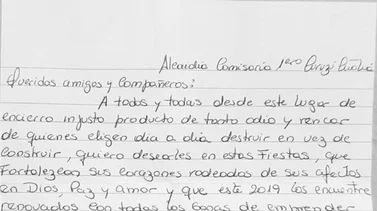 Alcaidia Comisario 1ero
Queridos amigos y compañeros:
A todos y todas desde este lugar de
encierro injusto producto de tanto odio y rencor
de quienes eligen dia a dia destruir en vez de
construir, quiero desearles en estas Fiestas, que
Fortalezcan sus corazones rodeados de sus afectos
en Dios, Paz y amor y que este 2019 los encuentre
renovados con todas las ganas de emprender